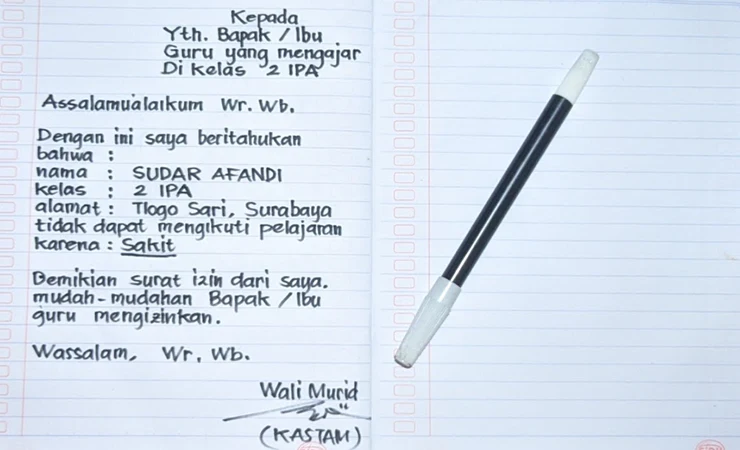 Kepada
Yth. Bapak / Ibu
Guru yang mengajar
Di kelas 2 IPA
Assalamualaikum Wr. Wb.
Dengan ini saya beritahukan
bahwa :
nama : SUDAR AFANDI
kelas : 2 IPA
alamat : Tlogo Sari, Surabaya
tidak dapat mengikuti pelajaran
karena : Sakit
Demikian surat izin dari saya.
mudah-mudahan Bapak / Ibu
guru mengizinkan.
Wassalam, Wr, Wb.
Wali Murid
(KASTAM)